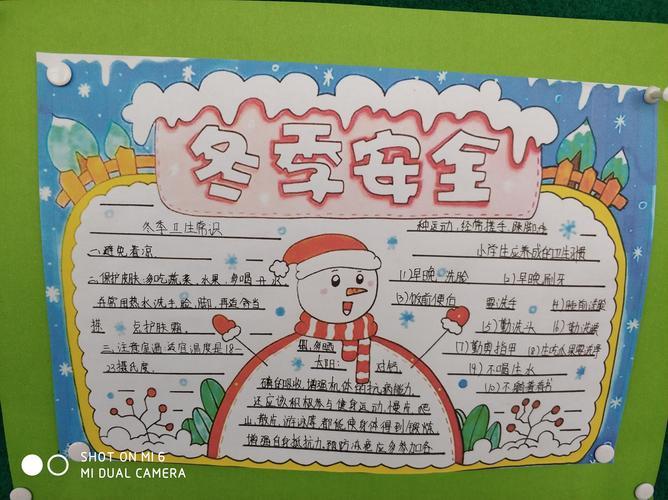 冬季安全
冬季卫生常识
一、避免着凉
二、保护皮肤:多吃蔬菜、水果,多喝开水
并常用热水洗手、脸、脚,再适当
搽 护肤霜。
三、注意居温:适宜温度是18—
23摄氏度。
多晒
太阳:
磷的吸收,增强机体的抗病能力
还应该积极参与健身运动,慢走、爬
山、散步、游泳等都能使身体得到锻炼
增强自身抵抗力,预防冻疮应多参加各
种运动,经常搓手、跺脚
小学生应养成的卫生习惯
(1)早晚洗脸
(2)早晚刷牙
(3)饭前便后 要洗手
(4)睡前洗脚
(5)勤洗头
(6)勤洗澡
(7)勤剪指甲
(8)生吃水果要洗净
(9)不喝生水
(10)
SHOT ON MI 6
MI DUAL CAMERA